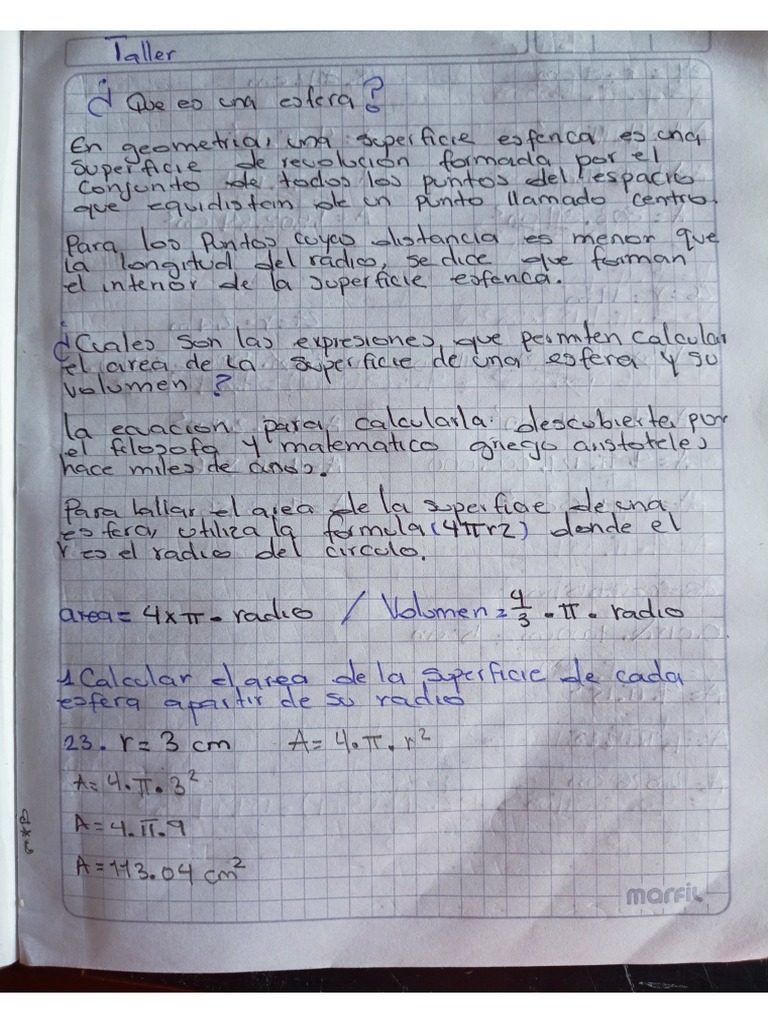 Taller
¿ Que es una esfera?
En geometria, una superficie esferica es una
superficie de revolucion formada por el
Conjunto de todos los puntos del espacio
que equidistan de un punto llamado centro.
Para los Puntos cuya distancia es menor que
la longitud del radio, se dice que forman
el interior de la superficie esferica.
¿Cuales son las expresiones, que permiten calcular
el area de la superficie de una esfera y su
volumen ?
la ecuacion para calcularla descubierta por
el filosofo y matematico griego aristoteles
hace miles de años.
Para hallar el area de la superficie de una
esfera, utiliza la formula (4πr2) donde el
r es el radio del circulo.
area = 4xπ. radio / Volumen = 4/3 . π. radio
1 Calcular el area de la superficie de cada
esfera apartir de su radio
23. r= 3 cm A= 4.π.r²
A= 4.π.3²
A= 4.π.9
A= 113.04 cm²
marfil